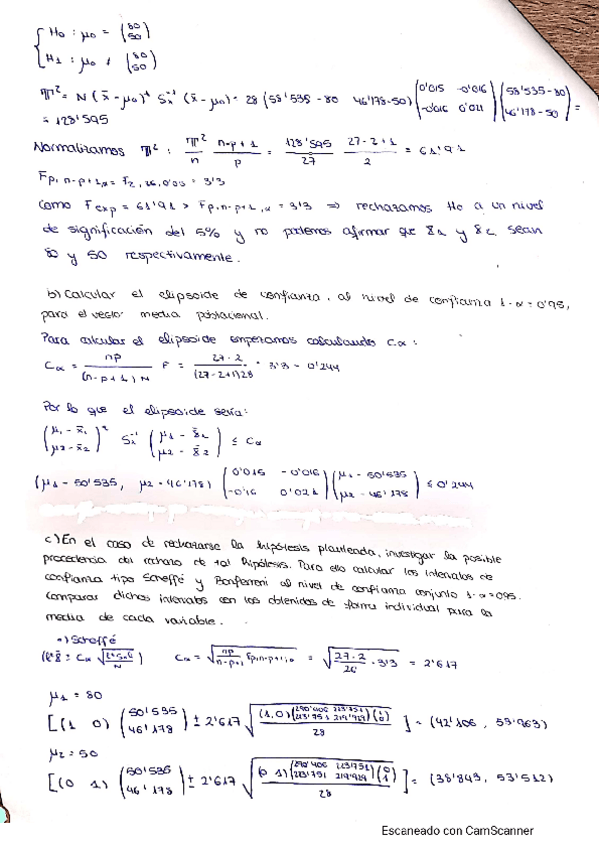 H₀ : μ₀ = (80 50)
H₁ : μ₀ ≠ (80 50)
T² = N (x̄ - μ₀)ᵗ Sₓ⁻¹ (x̄ - μ₀) = 28 (58'535 - 80 46'178 - 50) (0'015 -0'016 -0'016 0'021) (58'535 - 80 46'178 - 50) =
= 128'595
Normalizamos T² : T²/n · n-p+1/p = 128'595/27 · 27-2+1/2 = 61'91
Fp, n-p+1,α = F2, 26, 0'05 = 3'3
Como Fexp = 61'91 > Fp,n-p+1,α = 3'3 ⇒ rechazamos H₀ a un nivel
de significación del 5% y no podemos afirmar que x̄₁ y x̄₂ sean
80 y 50 respectivamente.
b) Calcular el elipsoide de confianza, al nivel de confianza 1-α = 0'95,
para el vector media poblacional.
Para calcular el elipsoide empezamos calculando Cα :
Cα = np/(n-p+1)N F = 27·2/(27-2+1)28 · 3'3 = 0'244
Por lo que el elipsoide sería:
(μ₁ - x̄₁ μ₂ - x̄₂)ᵗ Sₓ⁻¹ (μ₁ - x̄₁ μ₂ - x̄₂) ≤ Cα
(μ₁ - 50'535, μ₂ - 46'178) (0'015 -0'016 -0'16 0'021) (μ₁ - 50'535 μ₂ - 46'178) ≤ 0'244
c) En el caso de rechazarse la hipótesis planteada, investigar la posible
procedencia del rechazo de tal hipótesis. Para ello calcular los intervalos de
confianza tipo Scheffé y Bonferroni al nivel de confianza conjunto 1-α = 0.95.
Comparar dichos intervalos con los obtenidos de forma individual para la
media de cada variable.
•) Scheffé
Cα = √(np/n-p+1 Fp,n-p+1,α) = √(27·2/26 · 3'3) = 2'617
μ₁ = 80
[(1 0) (50'535 46'178) ± 2'617 √((1,0) (290'406 213'751 213'751 219'929) (1 0) / 28) ] = (42'106, 58'963)
μ₂ = 50
[(0 1) (50'535 46'178) ± 2'617 √((0 1) (290'406 213'751 213'751 219'929) (0 1) / 28) ] = (38'843, 53'512)
Escaneado con CamScanner